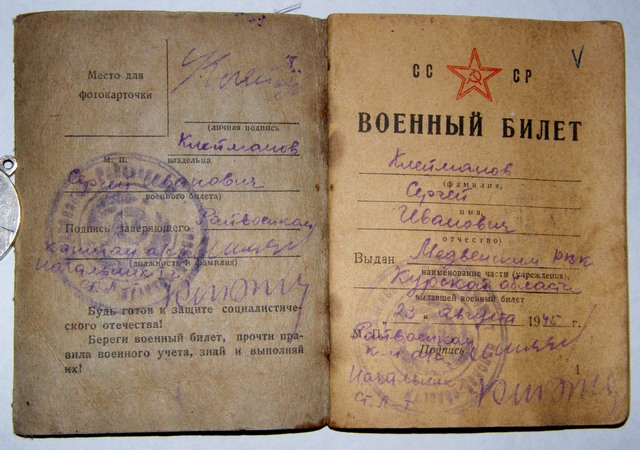 Место для
фотокарточки
(личная подпись
Клейманов
м. п. владельца
Сергей Иванович
военного билета)
Подпись заверяющего Райвоенком
капитан а/с
(должность и фамилия)
Начальник
Будь готов к защите социалистиче-
ского отечества!
Береги военный билет, прочти пра-
вила военного учета, знай и выполняй
их!
V
СС СР
ВОЕННЫЙ БИЛЕТ
Клейманов
(фамилия,
Сергей
имя,
Иванович
отчество)
Выдан Медвенским РВК
наименование части (учреждения),
Курской области
выдавшей военный билет
23 августа 1945 г.
М. П. Райвоенком
Подпись
Начальник
1